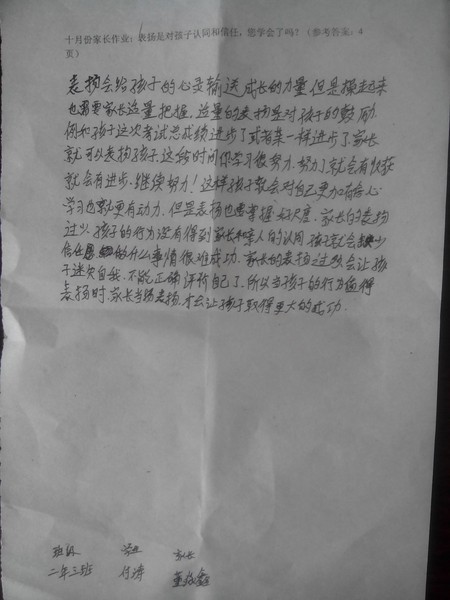 十月份家长作业：表扬是对孩子认同和信任，您学会了吗？（参考答案：4
页）
表扬会给孩子的心灵输送成长的力量但是操起来
也需要家长适量把握，适量的表扬是对孩子的鼓励
例如孩子这次考试总成绩进步了或者某一样进步了家长
就可以表扬孩子这段时间你学习很努力，努力了就会有收获
就会有进步，继续努力！这样孩子就会对自己更加有信心
学习也就更有动力，但是表扬也需掌握好尺度，家长的表扬
过少，孩子的行为没有得到家长和亲人的认同，孩子就会缺少
信任 的什么事情很难成功，家长的表扬过多会让孩
子迷失自我，不能正确评价自己了，所以当孩子的行为值得
表扬时，家长当场表扬，才会让孩子取得更大的成功.
班级 学生 家长
二年三班 付涛 董